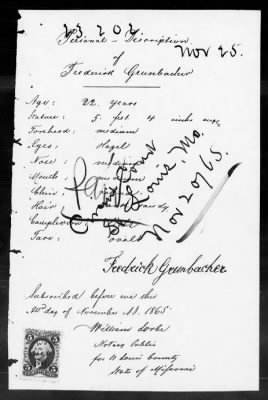 23 202
Personal - Description
Nov 25.
of
Frederick Grunbacher
Age: 22. years
Stature: 5. feet 4 inches
Forehead: medium
Eyes: Hazel
Nose: medium
Mouth: medium
Chin
Hair sandy
Complexion
Face: oval
St. Louis, Mo.
Nov 20/65.
Fredrick Grunbacher
Subscribed before me this
20 day of November A.D. 1865
William
Notary Public
for St Louis County
State of Missouri